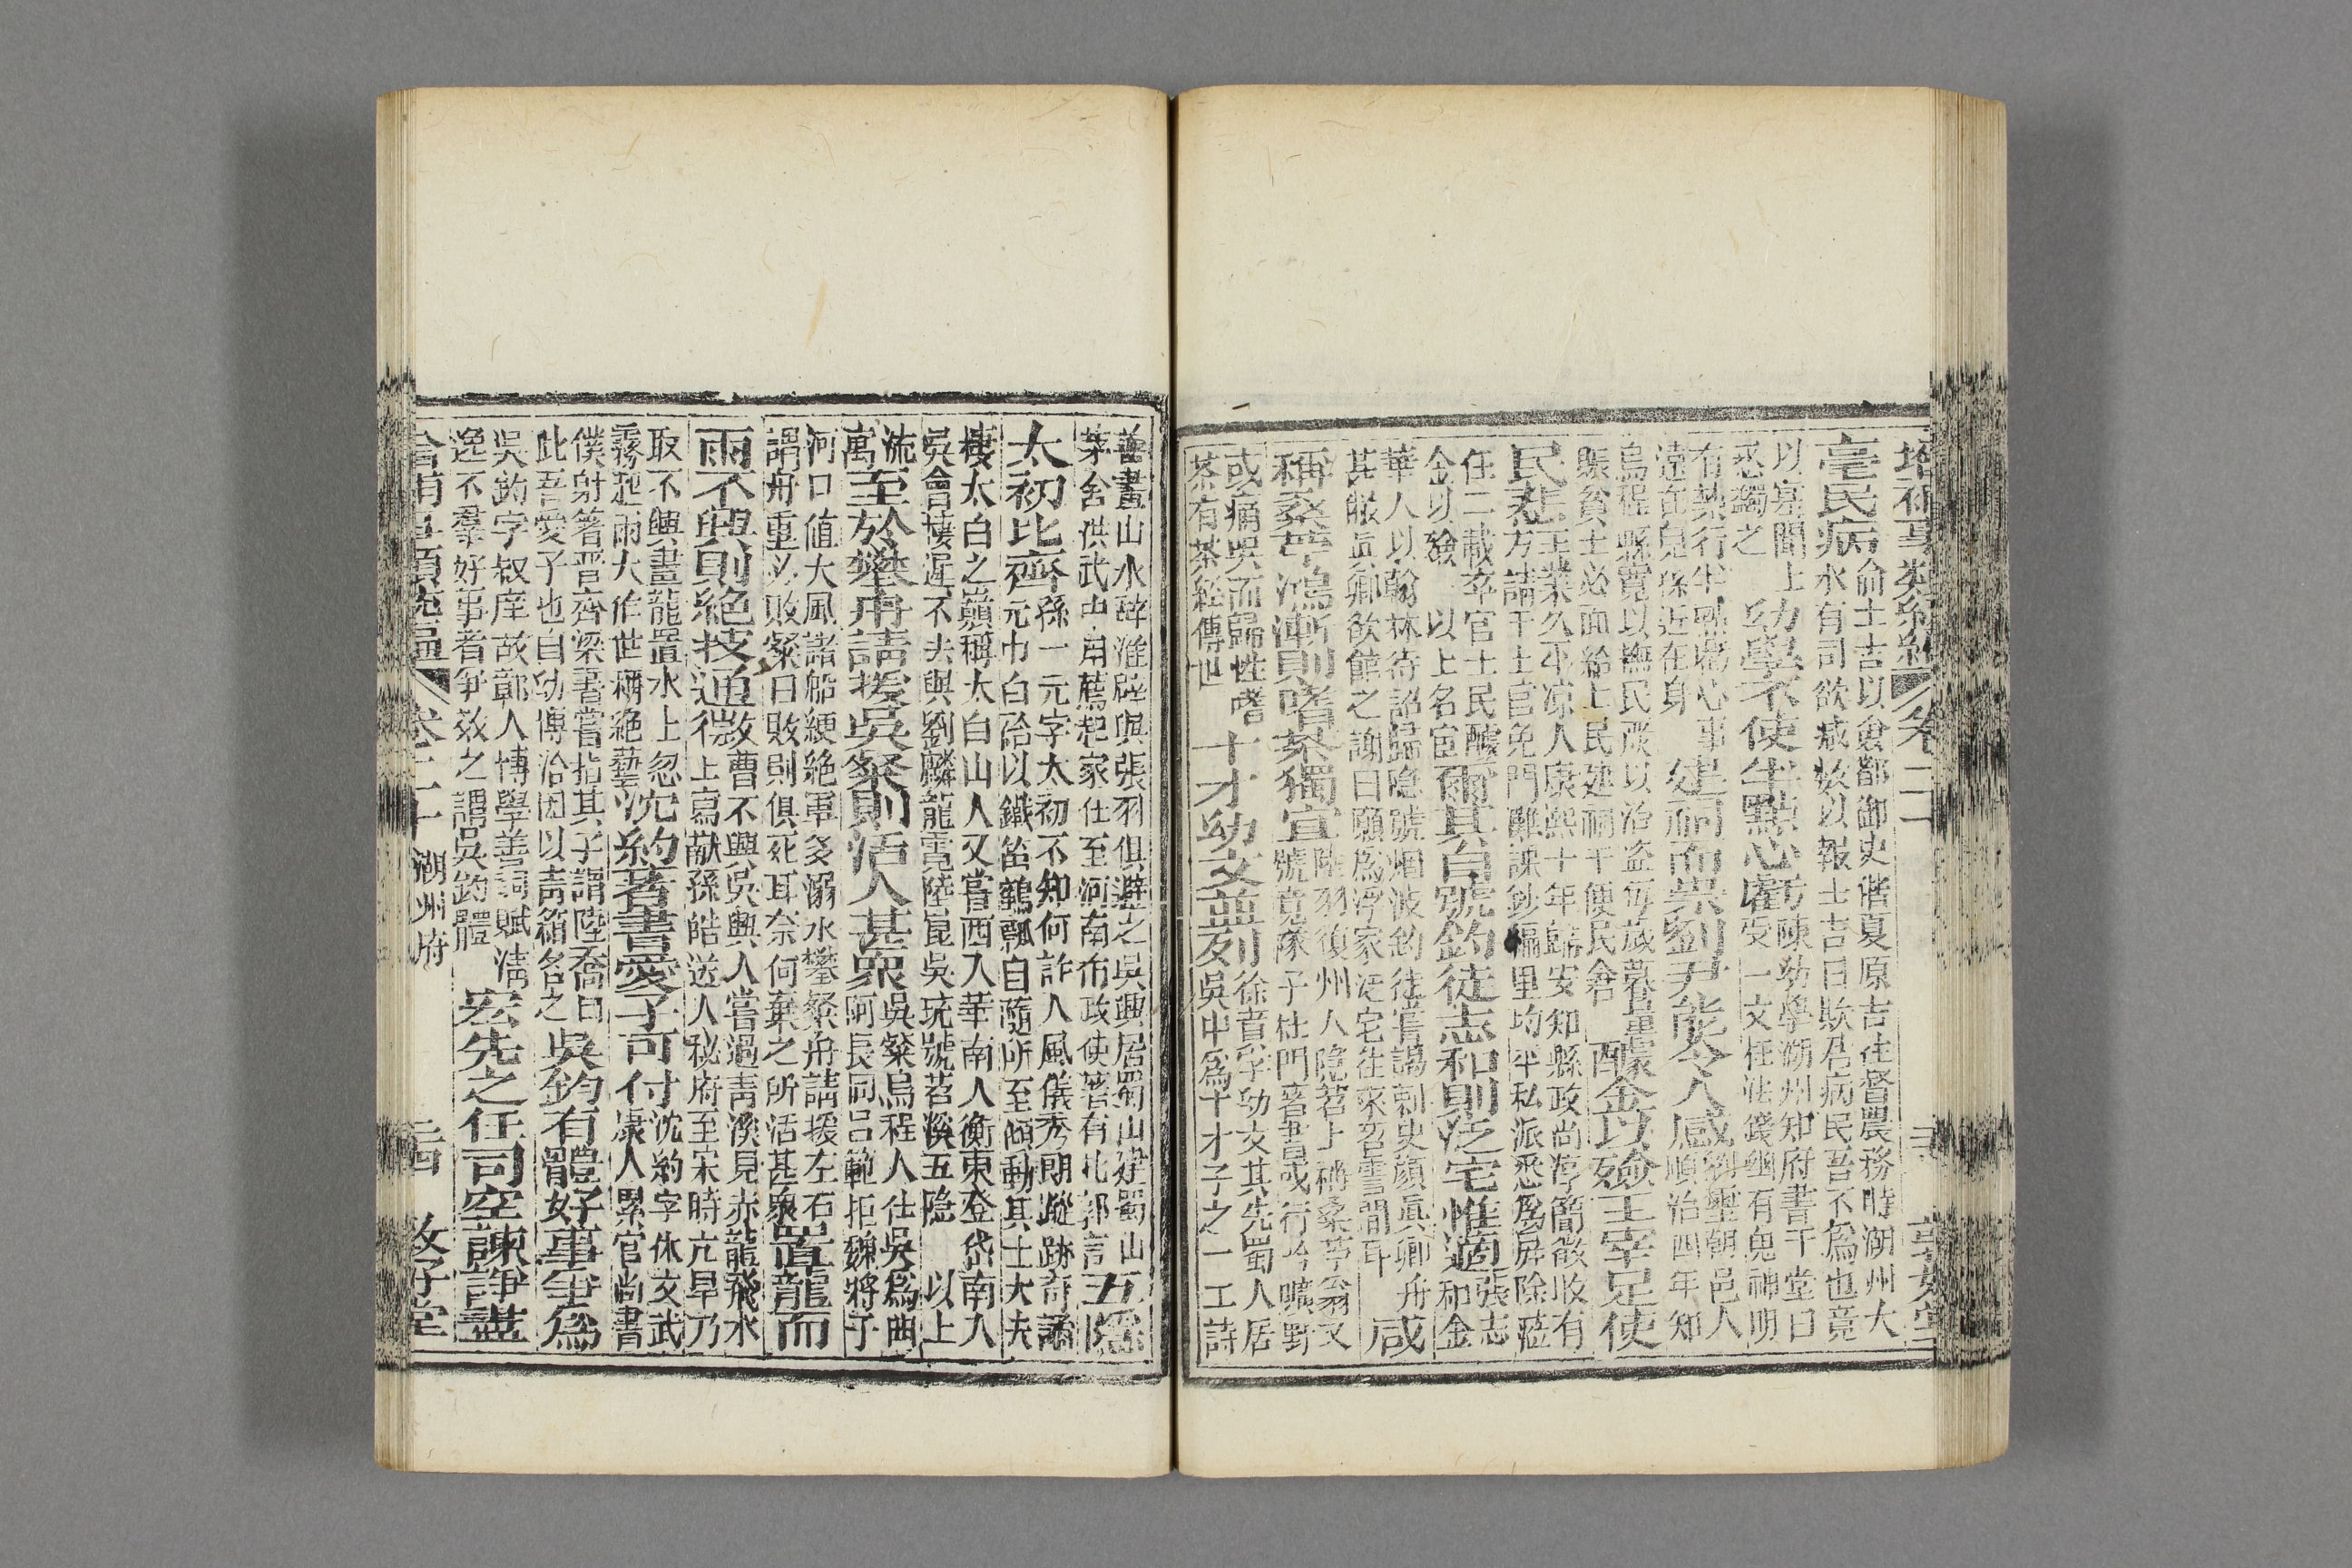 增補事類統編 卷二十
毫民病俞士吉以僉都御史偕夏原吉往督農務時湖州大
水有司欲減數以報士吉曰欺君病民吾不為也竟
以實聞上
悉蠲之
幼學不使半點心虧陳幼學湖州知府書于堂曰
受一文枉法錢幽有鬼神明
有禁行半點虧心事
遠在兒孫近在身
建祠而崇劉尹能令人感劉璽朝邑人
順治四年知
烏程縣寬以撫民嚴以治盜每歲暮量
賑貧士必面給上民建祠于便民倉
醵金以殮王宰足使
民悲王業久平凉人康熙十年歸安知縣政尚渟簡徵收有
方請干上官免門雜課鈔編里均平私派悉為屏除蒞
任二載卒官士民醵
金以殮 以上名宦
爾其自號釣徒志和則泛宅惟適張志
和金
華人以翰林待詔歸隐號烟波釣徒嘗謁刺史顏眞卿舟
甚敝眞卿欲館之謝曰願為浮家泛宅往來苕霅間耳
咸
稱桑苧鴻漸則嗜茶獨宜陸羽復州人隐苕上稱桑苧翁又
號竟陵子杜門著書或行吟曠野
或痛哭而歸性嗜
茶有茶經傳世
十才幼文並列徐賁字幼文其先蜀人居
吳中為十才子之一工詩
善畫山水辟淮辟與張羽俱避之吳興居蜀山建蜀山
茅舍洪武中用薦起家仕至河南布政使著有北郭言
五隱
太初比齊孫一元字太初不知何許人風儀秀朗蹤跡奇譎
元巾白袷以鐵笛鶴瓢自隨所至傾動其士大夫
棲太白之巔稱太白山人又嘗西入華南入衡東登岱南入
吳會棲遲不去與劉麟龍霓陸崑吳琉號苕溪五隐 以上
流
寓
至於攀舟請援吳粲則活人甚衆吳粲烏程人仕吳為曲
阿長同呂範拒魏將于
河口值大風諸船綆絕軍多溺水攀粲舟請援左右
謂舟重必敗粲曰敗則俱死耳奈何棄之所活甚衆
置龍而
雨不興則絕技通微曹不興吳興人嘗過青溪見赤龍飛水
上寫献孫皓送人秘府至宋時亢旱乃
取不興畫龍置水上忽
霧起雨大作世稱絕藝
沈約著書愛子可付沈約字休文武
康人累官尚書
僕射著晋齊梁書嘗指其子謂陸喬曰
此吾愛子也自幼傳洽因以青箱名之
吳鈞有體好事争為
吳鈞字叔庠故鄣人博學善詞賦清
逸不羣好事者争效之謂吳鈞體
宏先之任司空諫諍謹
卷二十 湖州府
敦好堂